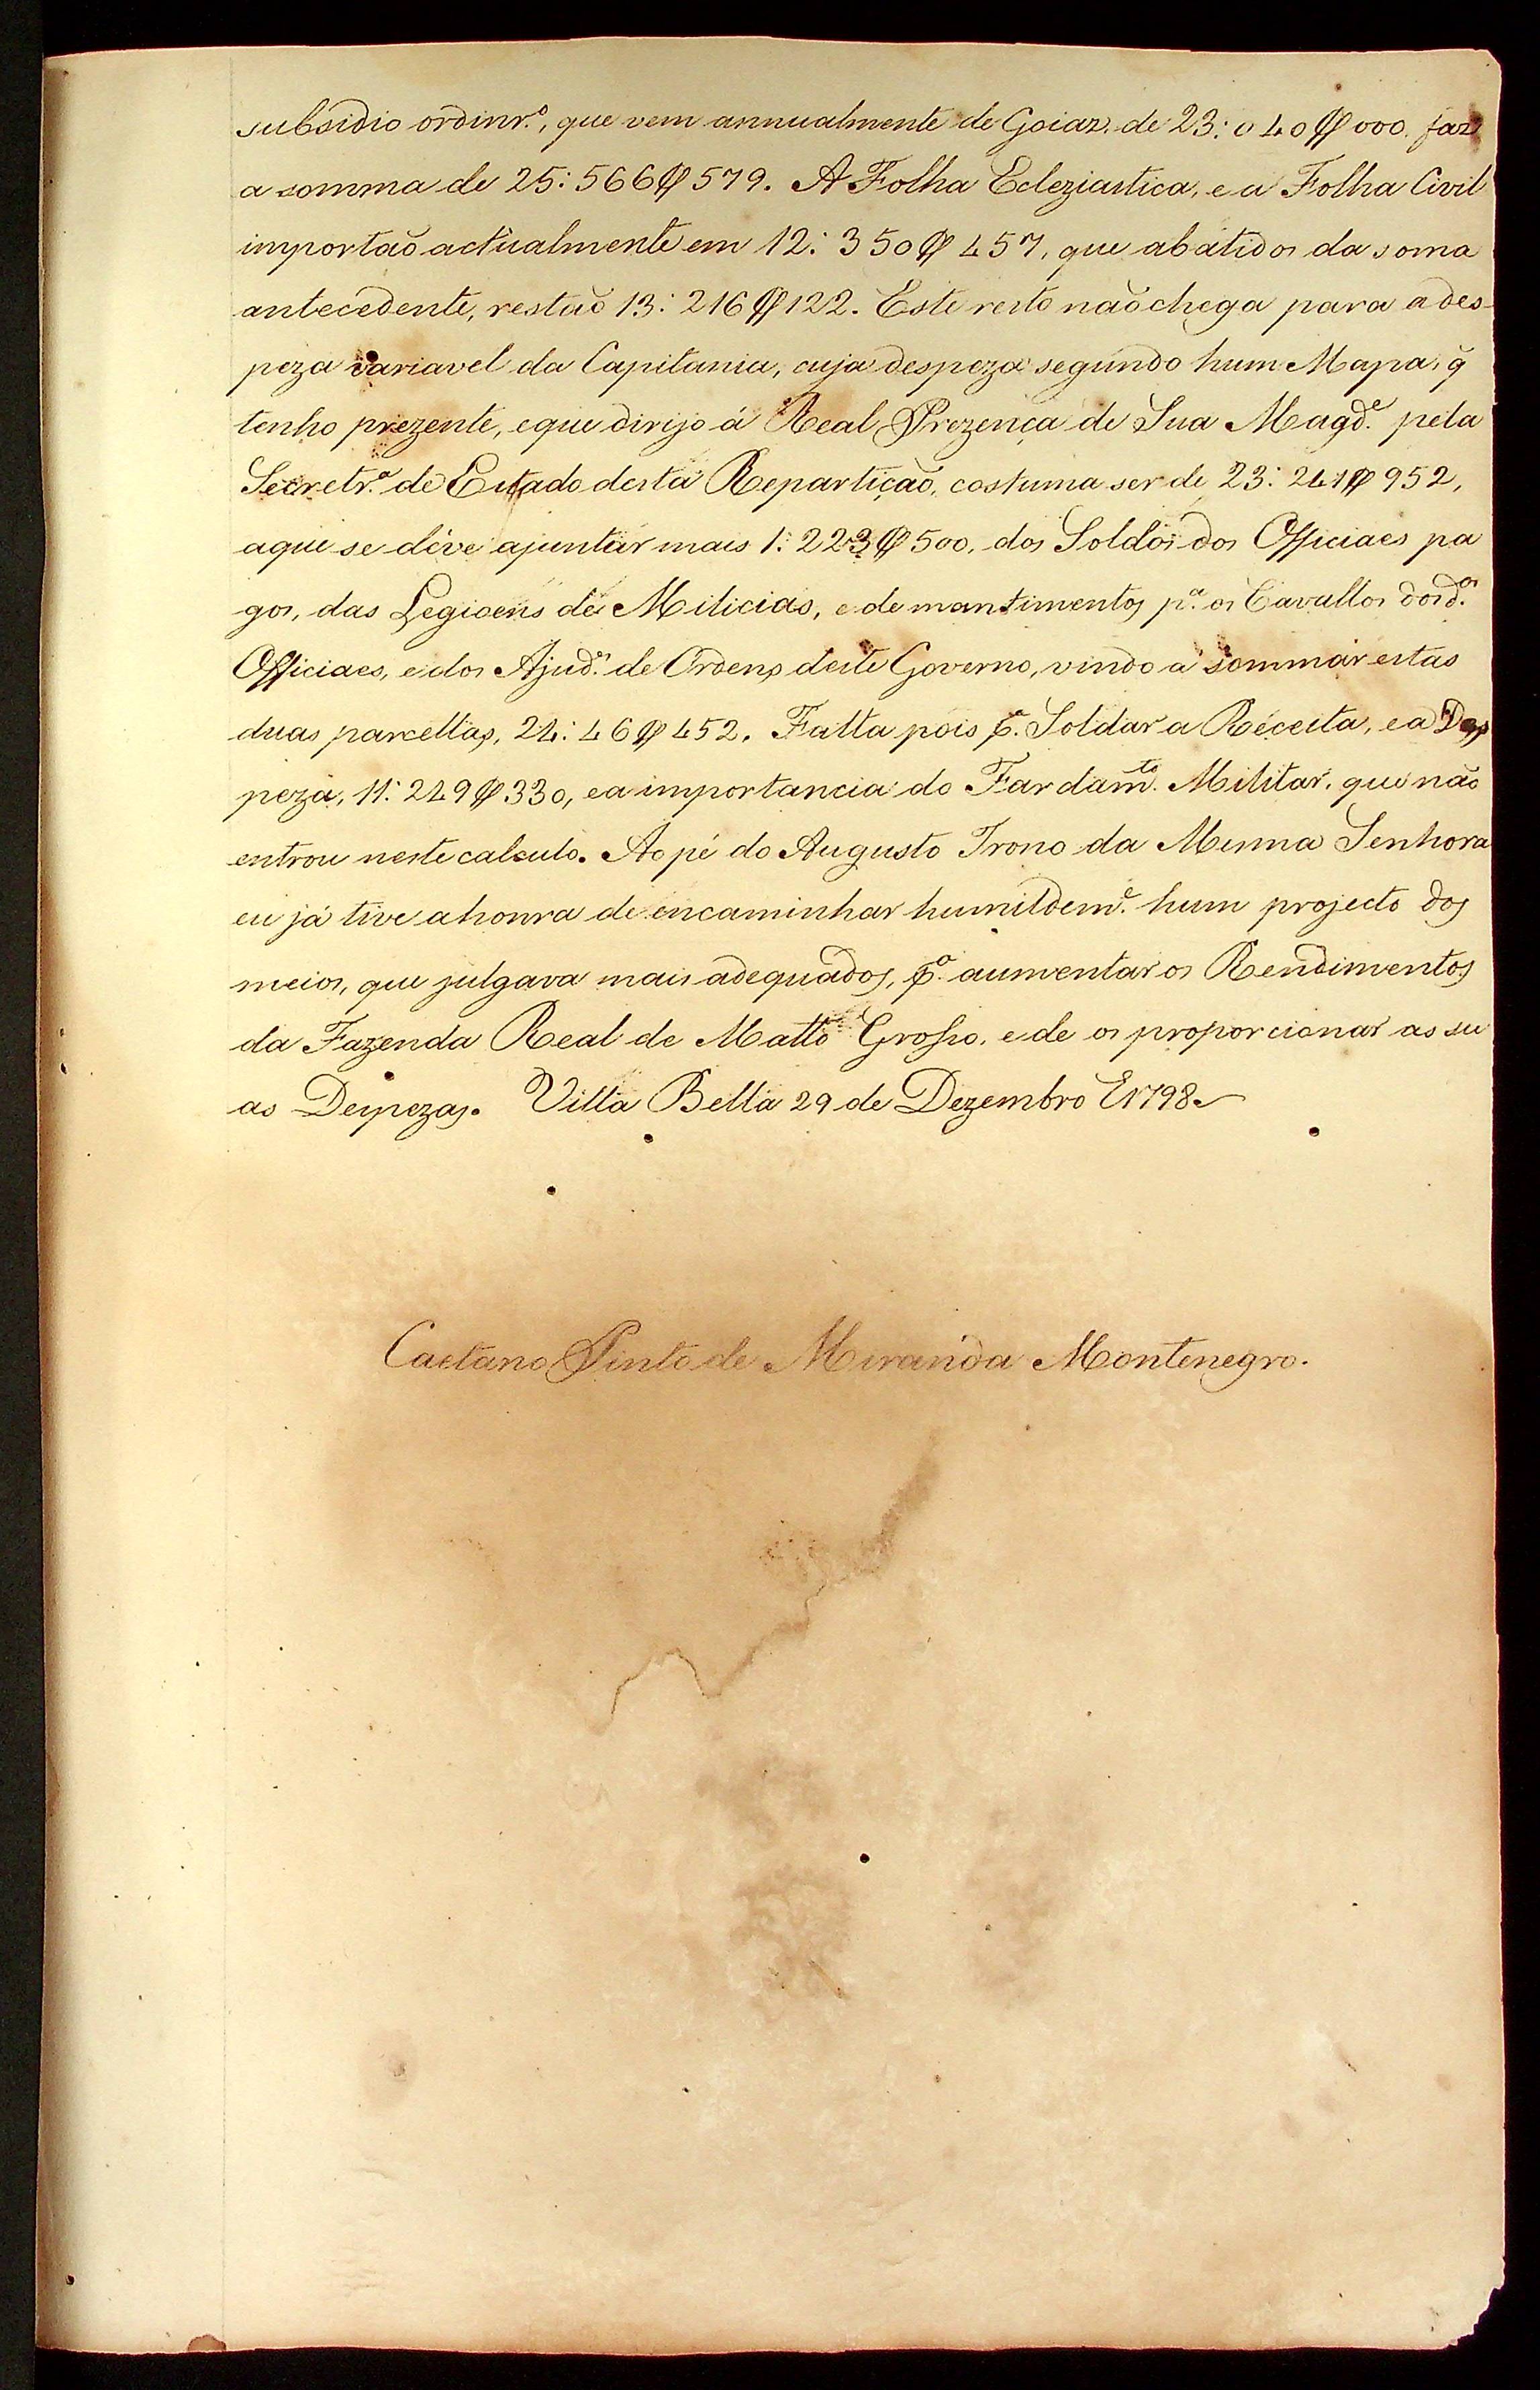 subsidio ordinr.º, que vem annualmente de Goiaz, de 23:040$000. faz
a somma de 25:566$579. A Folha Ecleziastica, e a Folha Civil
importaõ actualmente em 12:350$457, que abatidos da soma
antecedente, restaõ 13:216$122. Este resto naõ chega para a des-
peza variavel da Capitania, cuja despeza segundo hum Mapa, q̃
tenho prezente, e que dirijo á Real Prezença de Sua Magd.e pela
Secretr.a de Estado desta Repartiçaõ, costuma ser de 23:241$952,
a que se déve ajuntar mais 1:223$500, dos Soldos dos Officiaes pa
gos, das Legioens de Milicias, e de mantimentos p.a os Cavallos dos d.os
Officiaes, e dos Ajud.es de Ordens deste Governo, vindo a sommar estas
duas parcellas, 24:46$452. Falta pois p.a Soldar a Receita, e a Des
peza, 11:249$330, e a importancia do Fardam.to Militar, que não
entrou neste calculo. Ao pé do Augusto Trono da Mesma Senhora
eu já tive a honra de encaminhar humildem.e hum projecto dos
meios, que julgava mais adequados, p.a aumentar os Rendimentos
da Fazenda Real de Matto Grosso, e de os proporcionar as su
as Despezas. Villa Bella 29 de Dezembro E 1798
Caetano Pinto de Miranda Montenegro.